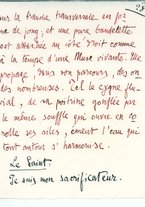 sur la branche transversale en for
me de joug, et une pure bandelette
est attachée au côté droit comme
à la tempe d'une Muse vivante. Elle
propage, dans son parcours, des on
des nombreuses. Tel le cygne flu
vial, de sa poitrine gonflée par
le même souffle qui ouvre en co
rolle ses ailes, émeut l'eau qui
tout autour s'harmonise.
Le Saint.
Je suis mon sacrificateur.